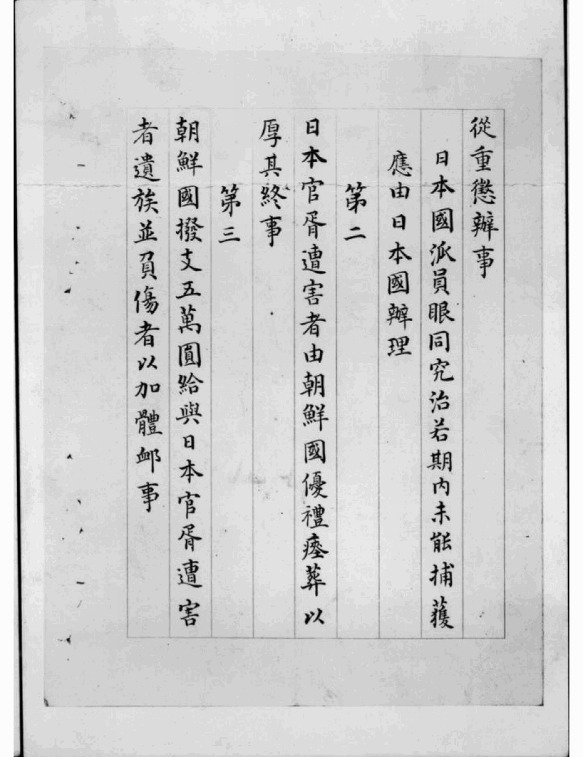 從重懲辦事
日本國派員眼同究治若期內未能捕獲
應由日本國辦理
第二
日本官胥遭害者由朝鮮國優禮瘞葬以
厚其終事
第三
朝鮮國撥支五萬圓給與日本官胥遭害
者遺族並負傷者以加體卹事